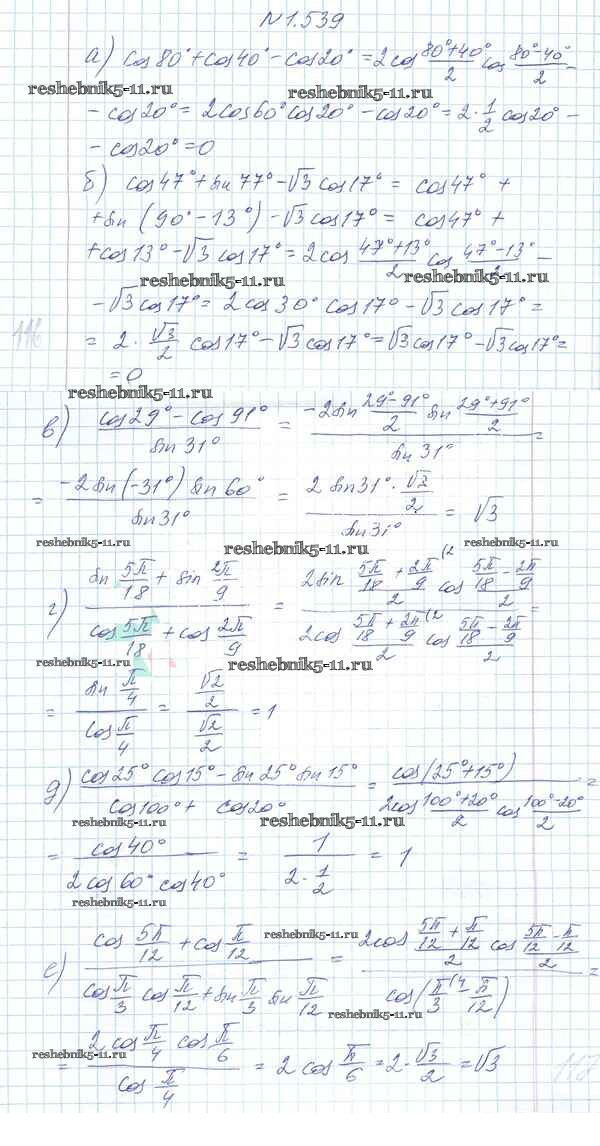 №1.539
а) cos80°+cos40°-cos20° = 2cos (80°+40°)/2 cos (80°-40°)/2 -
reshebnik5-11.ru reshebnik5-11.ru
- cos20° = 2cos60°cos20° - cos20° = 2·1/2 cos20° -
- cos20° = 0
б) cos47°+sin77°-√3cos17° = cos47° +
+sin (90°-13°) -√3cos17° = cos47° +
+cos13°-√3cos17° = 2cos (47°+13°)/2 cos (47°-13°)/2 -
reshebnik5-11.ru
-√3cos17° = 2cos30° cos17° - √3cos17° =
116
= 2·√3/2 cos17°-√3cos17° = √3cos17°-√3cos17° =
= 0
reshebnik5-11.ru
в) (cos29°-cos91°)/sin31° = (-2sin (29°-91°)/2 sin (29°+91°)/2)/sin31° =
= (-2sin(-31°)sin60°)/sin31° = (2sin31°·√2/2)/sin31° = √3
reshebnik5-11.ru reshebnik5-11.ru
г) (sin 5π/18 + sin 2π/9)/(cos 5π/18 + cos 2π/9) = (2sin (5π/18 + 2π/9(2)/2 cos (5π/18 - 2π/9)/2)/(2cos (5π/18 + 2π/9(2)/2 cos (5π/18 - 2π/9)/2) =
reshebnik5-11.ru reshebnik5-11.ru
= (sin π/4)/(cos π/4) = (√2/2)/(√2/2) = 1
д) (cos25°cos15°-sin25°sin15°)/(cos100°+cos20°) = cos(25°+15°)/(2cos (100°+20°)/2 cos (100°-20°)/2) =
reshebnik5-11.ru reshebnik5-11.ru
= cos40°/(2cos60°cos40°) = 1/(2·1/2) = 1
reshebnik5-11.ru
reshebnik5-11.ru
е) (cos 5π/12 + cos π/12)/(cos π/3 cos π/12 + sin π/3 sin π/12) = (2cos (5π/12 + π/12)/2 cos (5π/12 - π/12)/2)/cos(π/3(4 - π/12) =
reshebnik5-11.ru
= (2cos π/4 cos π/6)/cos π/4 = 2cos π/6 = 2·√3/2 = √3
reshebnik5-11.ru
117